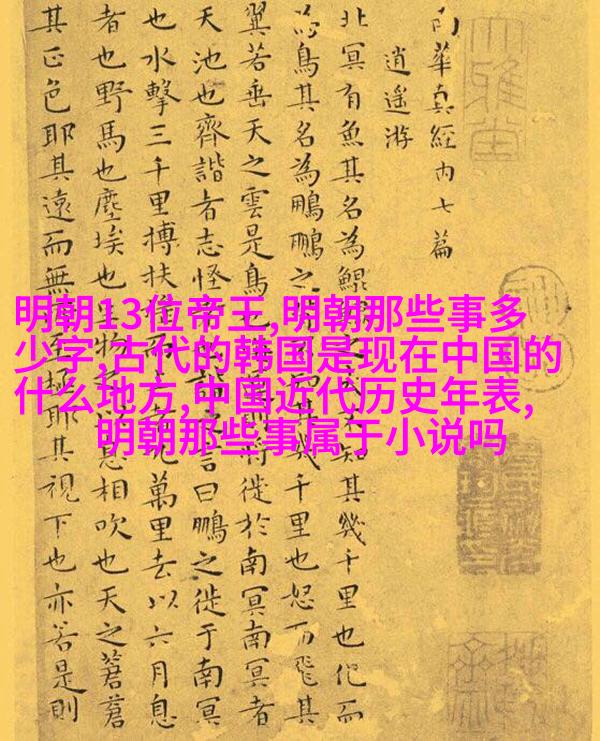 南華真經内七篇
逍遥游
北冥有魚其名為鯤知其幾千里也化而
為鳥其名為鵬鵬之幾千里也怒而飛其
翼若垂天之雲是鳥也將徙於南冥南冥者
天池也齊諧者志怪言曰鵬之徙于南冥
也水擊三千里搏扶九萬里去以六月息
者也野馬也塵埃也生物息相吹也天之蒼蒼
其正色耶其遠而無至極耶其視下也亦若是則
明朝13位帝王,明朝那些事多
少字,古代的韩国是现在中国的
什么地方,中国近代历史年表,
明朝那些事属于小说吗